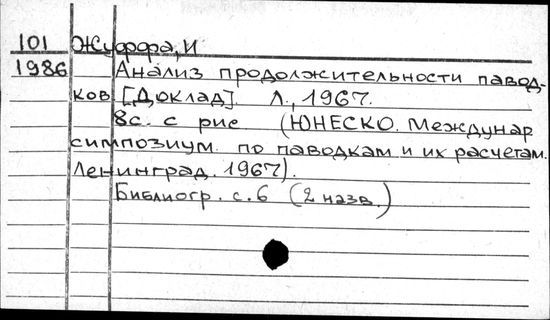 101 Жуффа, И
1986 Анализ продолжительности павод-
ков [Доклад]. Л., 1967.
8с. с рис (ЮНЕСКО. Междунар
симпозиум по паводкам и их расчетам.
Ленинград. 1967).
Библиогр. с. 6 (2 назв.)